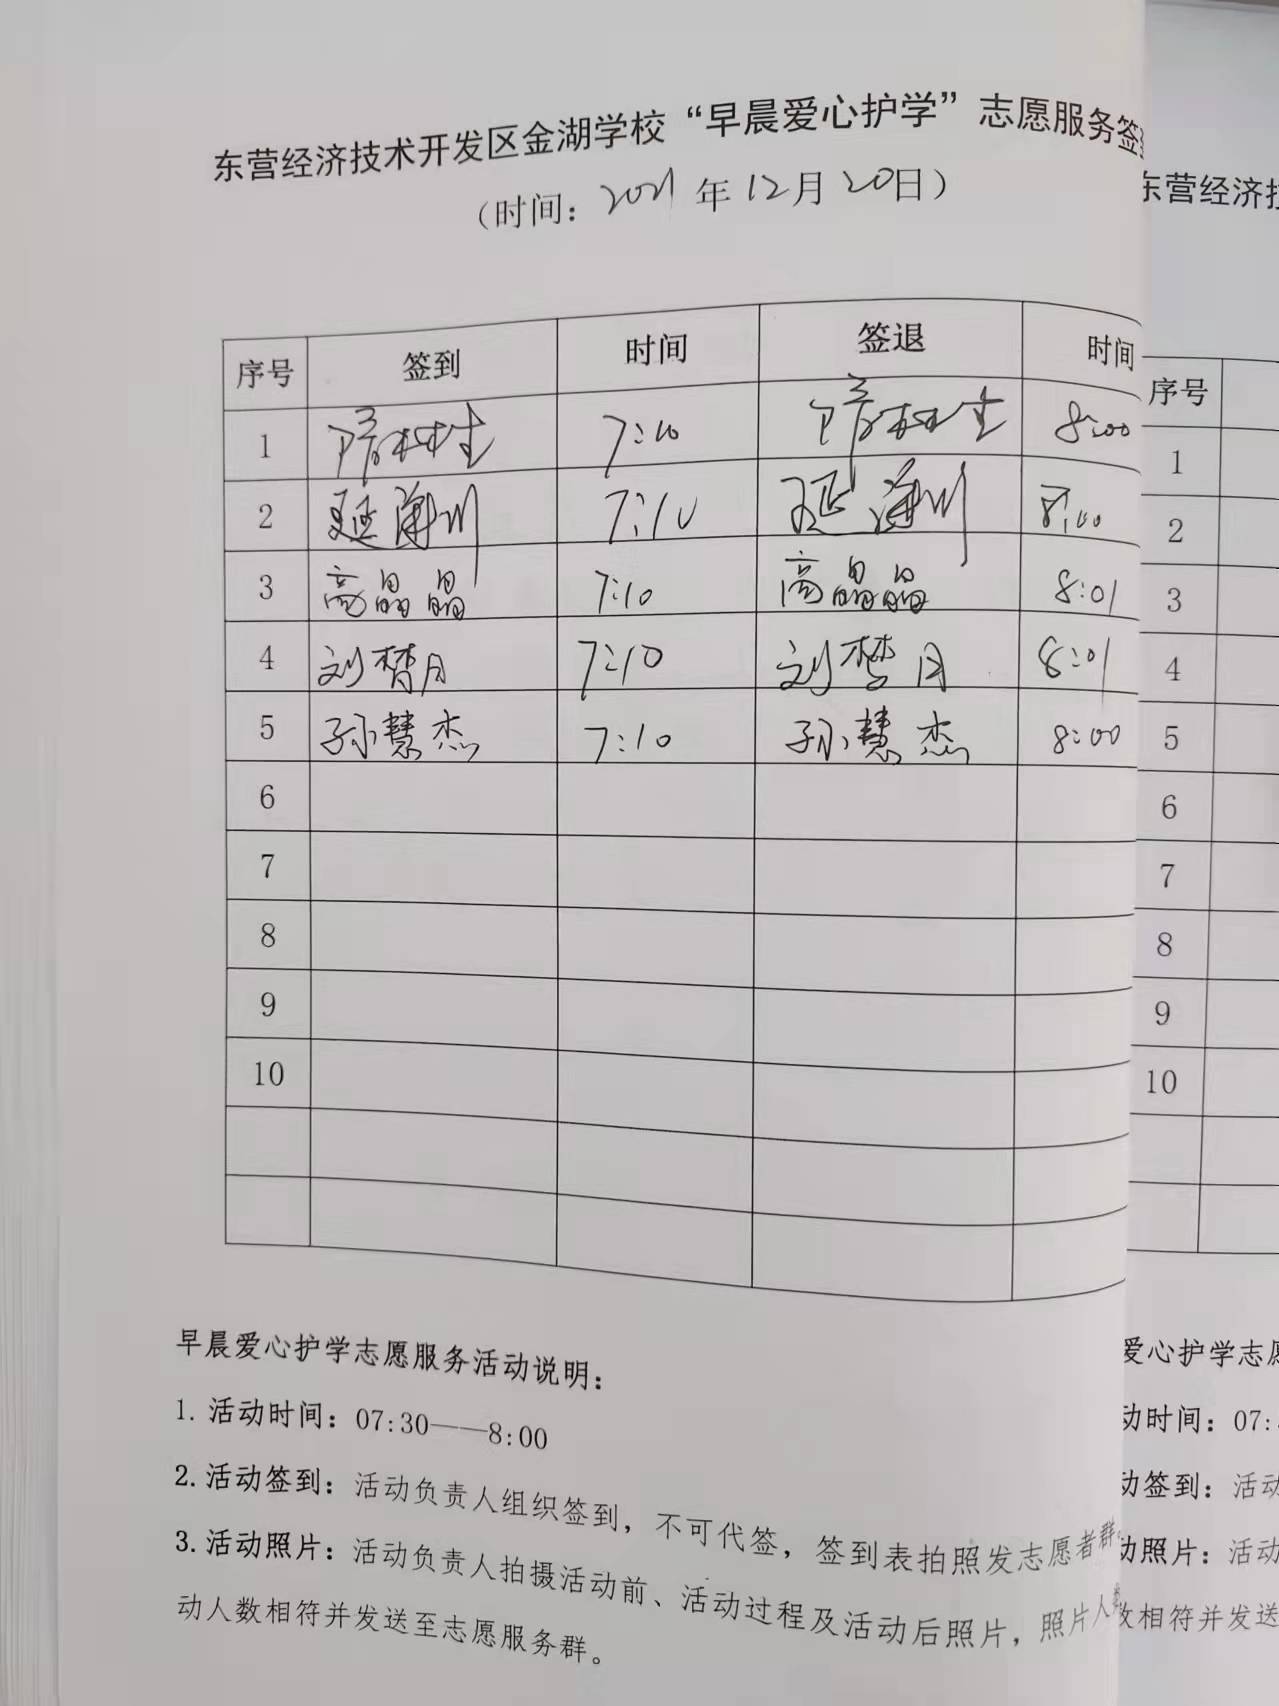 东营经济技术开发区金湖学校“早晨爱心护学”志愿服务签
（时间：2021年12月20日）
序号 签到 时间 签退 时间
1 7:10 8:00
2 延 7:10 延 8:00
3 高晶晶 7:10 高晶晶 8:01
4 刘梦月 7:10 刘梦月 8:01
5 孙慧杰 7:10 孙慧杰 8:00
6
7
8
9
10
早晨爱心护学志愿服务活动说明：
1.活动时间：07:30——8:00
2.活动签到：活动负责人组织签到，不可代签，签到表拍照发志愿者群。
3.活动照片：活动负责人拍摄活动前、活动过程及活动后照片，照片人数
动人数相符并发送至志愿服务群。
东营经济技
序号
1
2
3
4
5
6
7
8
9
10
爱心护学志愿
动时间：07:
动签到：活动
动照片：活动
数相符并发送